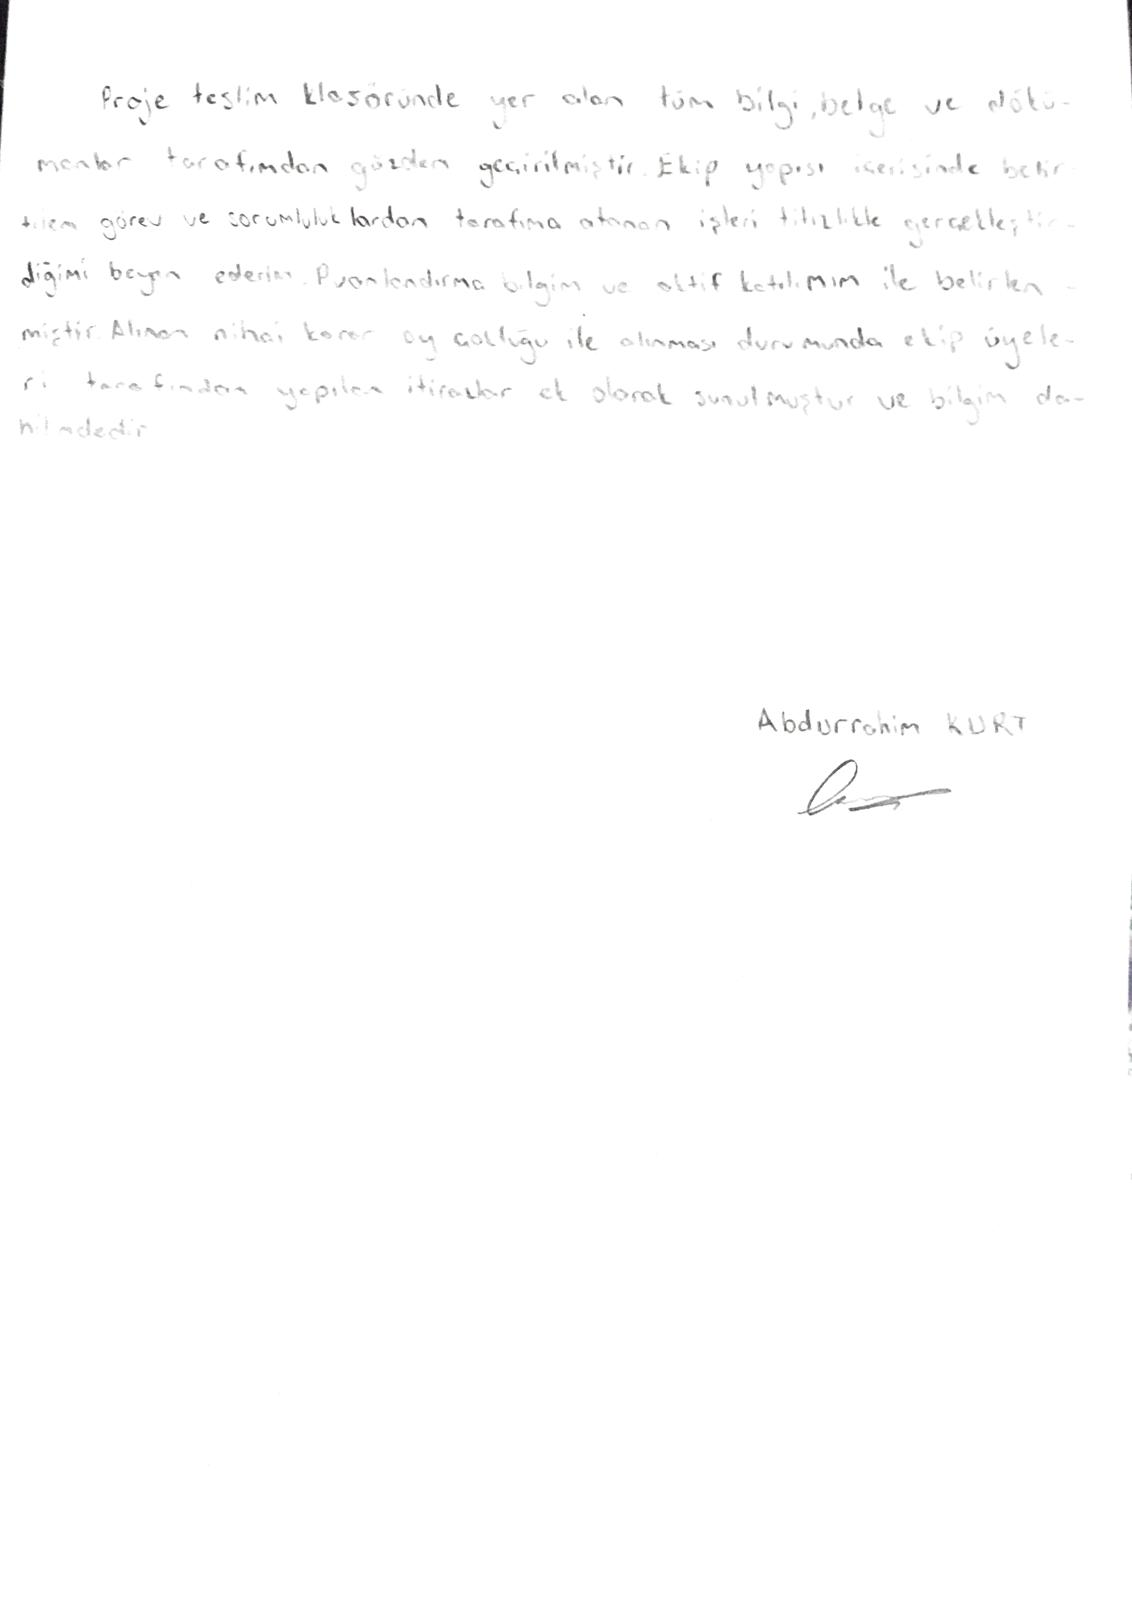 Proje teslim klasöründe yer alan tüm bilgi, belge ve dökü-
manlar tarafımdan gözden geçirilmiştir. Ekip yapısı içerisinde belir
tilem görev ve sorumluluklardan tarafıma atanan işleri titizlikle gerçekleştir-
diğimi beyan ederim. Puanlandırma bilgim ve aktif katılımım ile belirlen-
miştir. Alınan nihai karar oy çokluğu ile alınması durumunda ekip üyele-
ri tarafından yapılan itirazlar ek olarak sunulmuştur ve bilgim da-
hilmdedir
Abdurrahim KURT